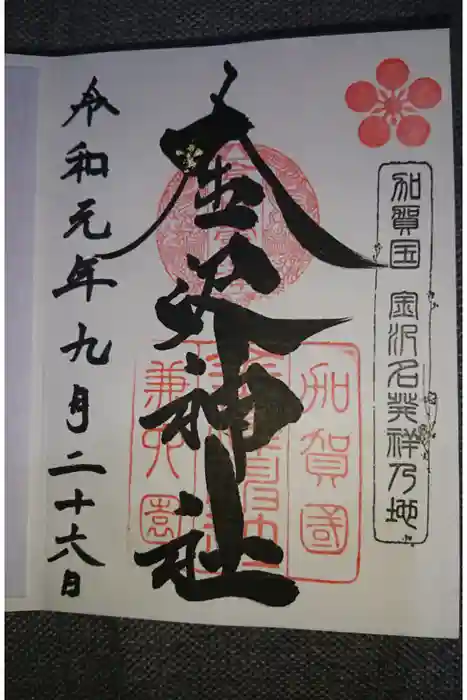 加賀国 金沢名発祥乃地
加賀國
兼六園
金沢神社
令和元年九月二十六日